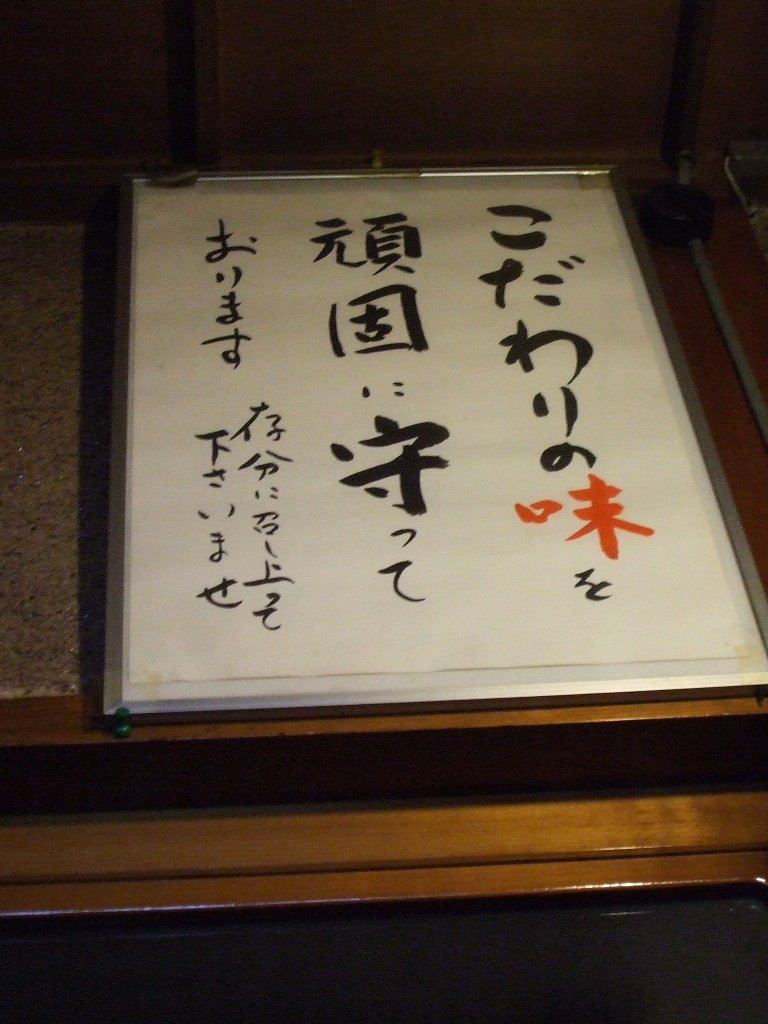 こだわりの味を
頑固に守って
おります
存分に召し上って
下さいませ